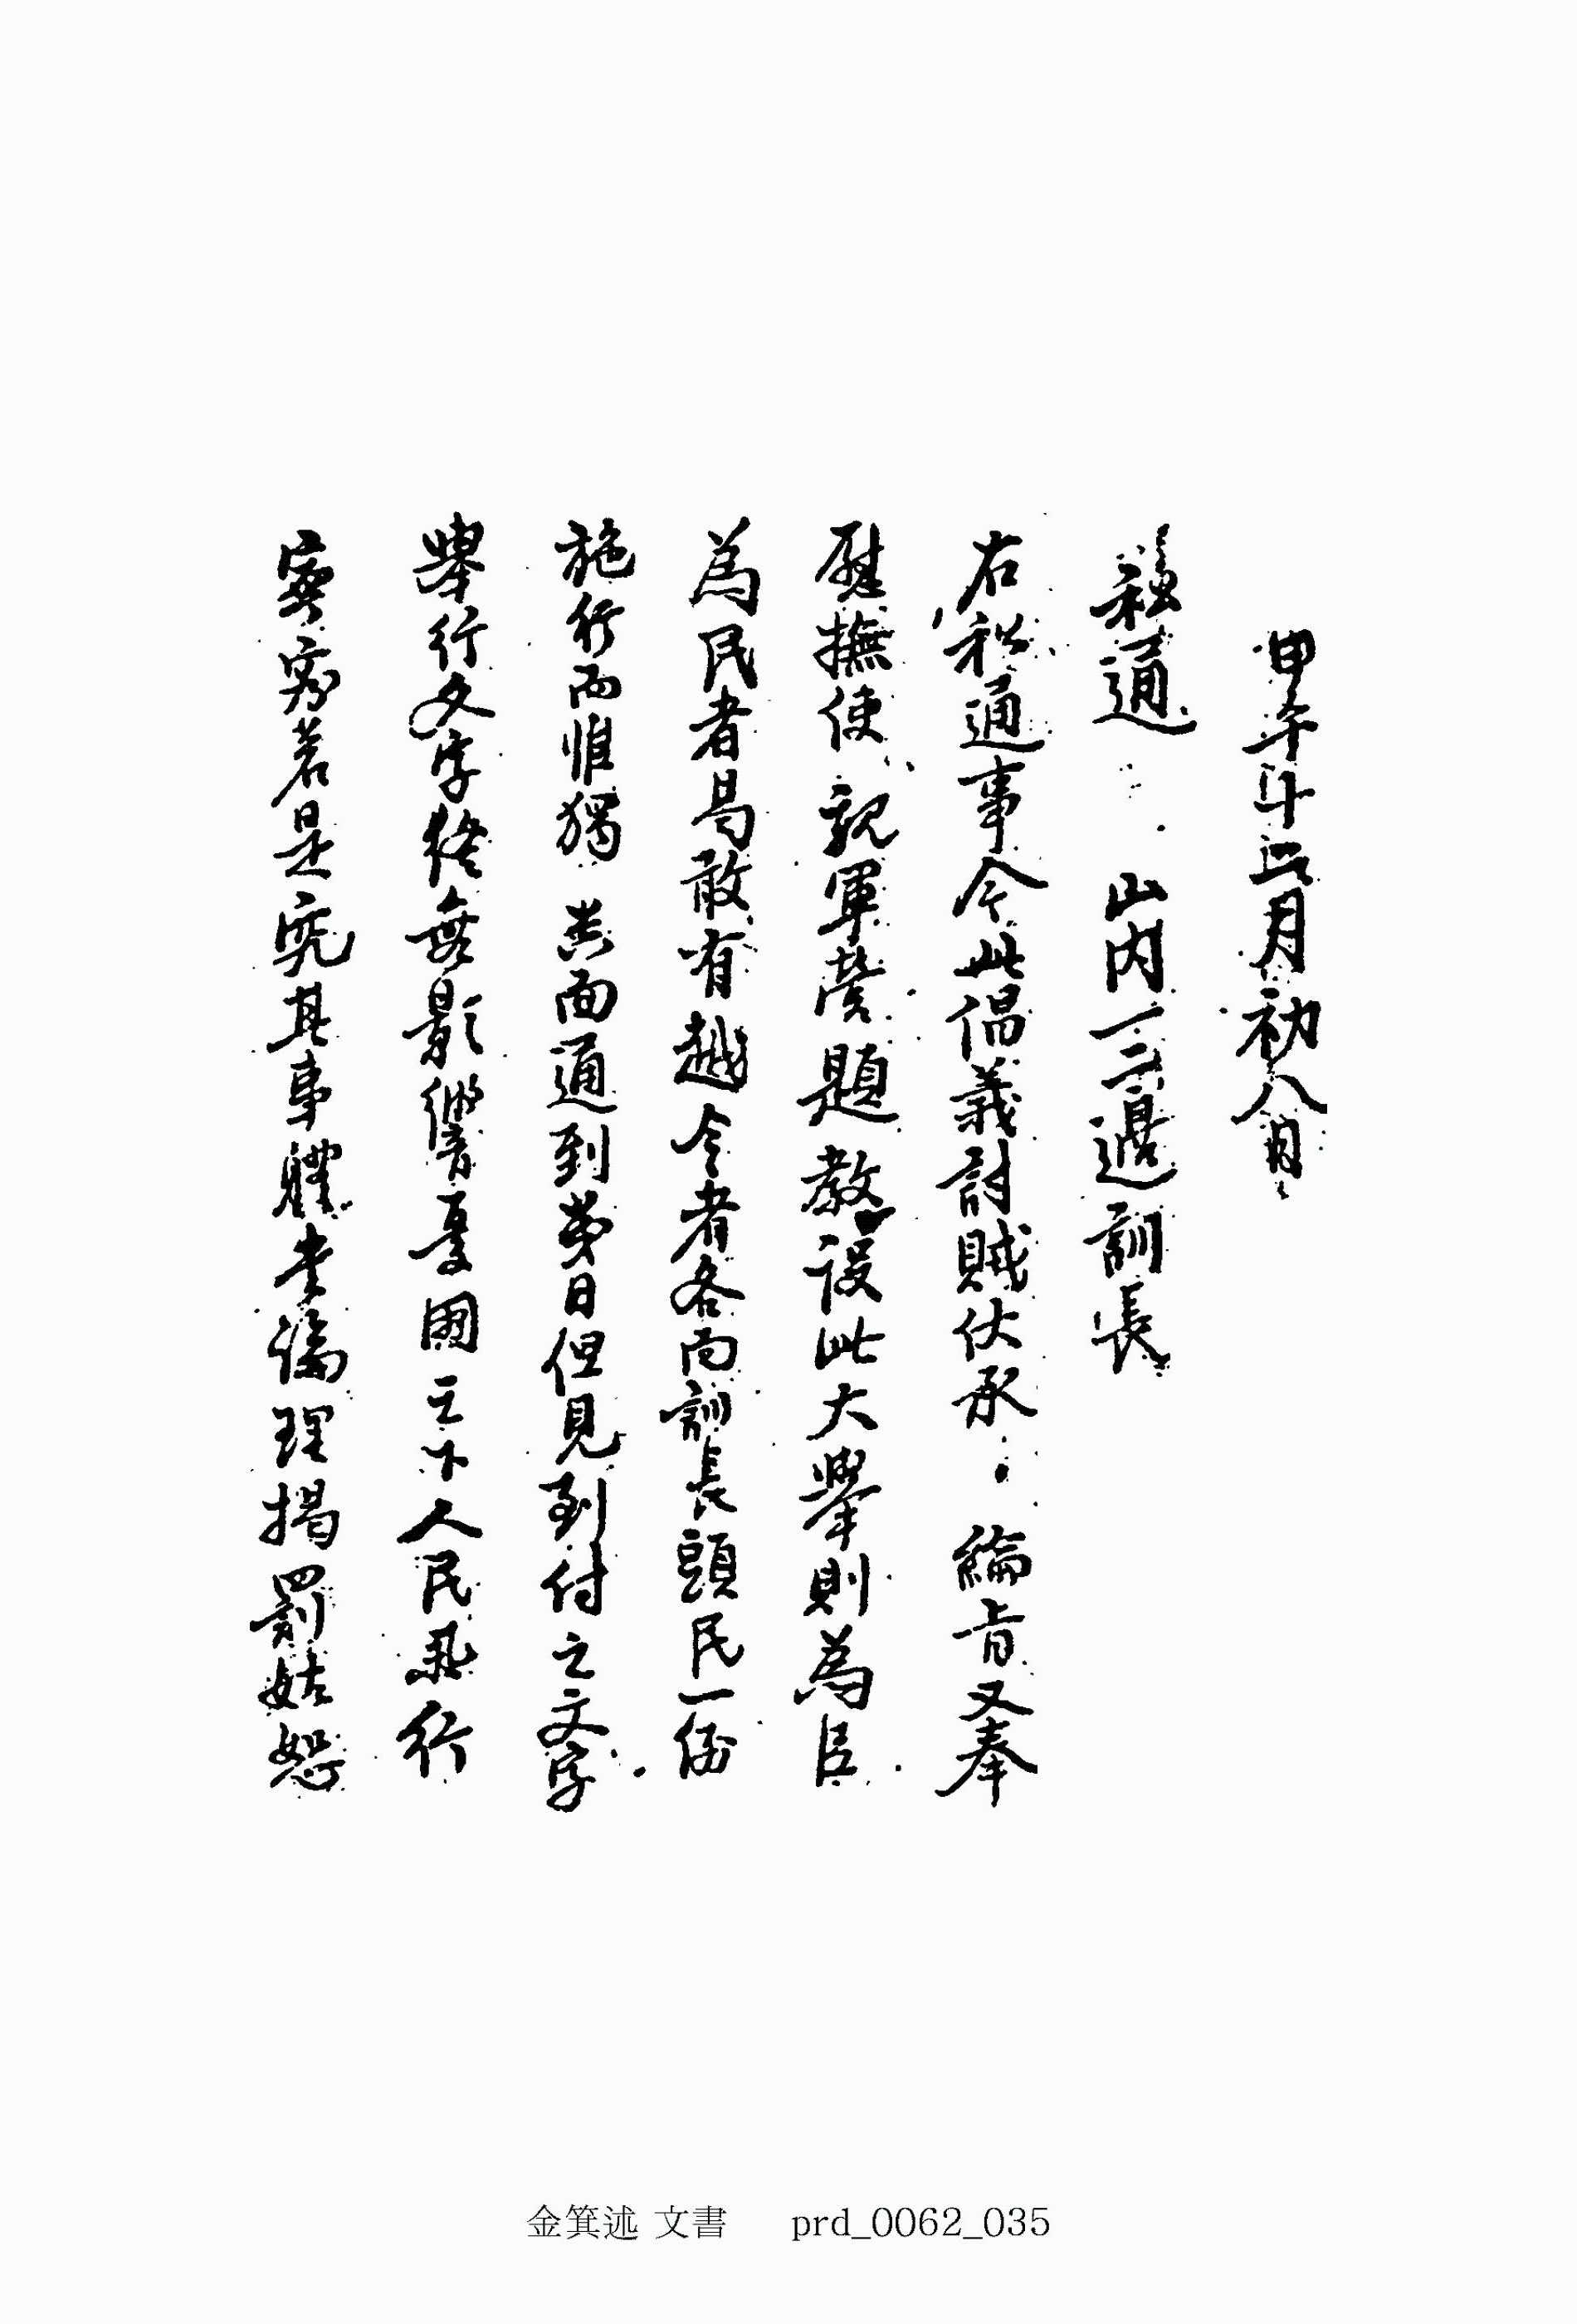 甲午十二月初八日
私通 山内一二邊訓長
右私通事今此倡義討賊伏承 綸音又奉
慰撫使 親軍營題敎設此大擧則為臣
為民者曷敢有越令者各面訓長頭民一依
施行而惟獨 共面通到第日但見到付之文字
擧行文字終無影響憂國之下人民擧行
寀若是究其事體未論理揭罰姑恕
金箕述 文書 prd_0062_035